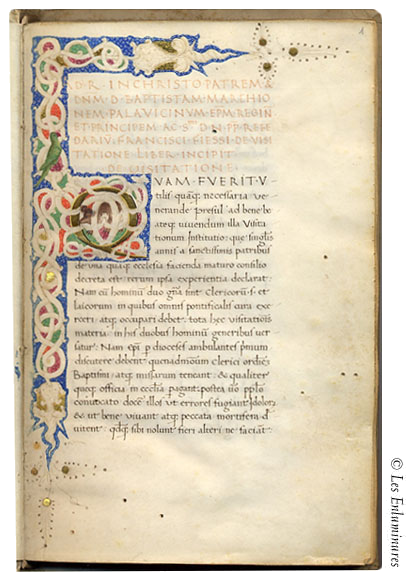 1
AD · R · IN CHRISTO PATREM &
DNM · D · BAPTISTAM MARCHIO
NEM · PALAVICINVM · EPM REGIN
ET PRINCIPEM AC S DN PP REFE
DARIV FRANCISCI FIESSI DE VISI
TATIONE LIBER INCIPIT
DE VISITATIONE
QVAM · FVERIT · V
tilis quāq; necessaria ve
nerande Presul ad bene be
ateq; viuendum illa Visita
tionum Institutio, que singulis
annis a sanctissimis patribus
de una quaq; ecclesia facienda maturo consilio
decreta est rerum ipsa experientia declarat.
Nam cū hominū duo gña sint Clericorū: et
laicorum in quibus omnis pontificalis cura exe
rceri atq; occupari debet, tota hec visitatiōis
materia in his duobus hominū generibus ver
satur. Nam Epī p dioceses ambulantes pmum
discutere debent quenadmoū Clerici ordiēs
Baptismi, atq; missarum teneant & qualiter
queq; officia in ecclīa pagant: postea ūo pplo
conuocato doceāt illos vt errores fugiant
& ut bene viuant atq; peccata mortifera d
vitent qdq; sibi nolunt fieri alteri ne faciāt
© Les Enluminures